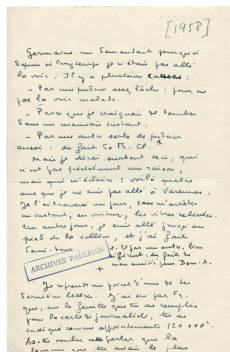 [1958]
Germaine me demandait pourquoi
depuis si longtemps je n'étais pas allé
la voir. Il y a plusieurs causes :
— Par une pudeur assez lâche : pour ne
pas la voir malade.
— Parce que je craignais de tomber
dans un mauvais instant.
— Par une autre sorte de pudeur
aussi : du fait de M. Cl.
Mais je dirai surtout ceci, qui
n'est pas précisément une raison,
mais qui m'éclaire : voilà quatre
ans que je ne suis pas allé à Varennes.
Je l'ai traversé un jour, sans m'arrêter
un instant, en voiture, les vitres relevées.
Un autre jour, je suis allé jusqu'au
pied de la colline, et j'ai fait
demi-tour.
ARCHIVES PAULHAN
Je reprends un point d'une de tes
dernières lettres.
que, sur la feuille que tu as remplie
pour la carte de journaliste, tu as
indiqué comme appointements 120.000
somme que tu avais le plus